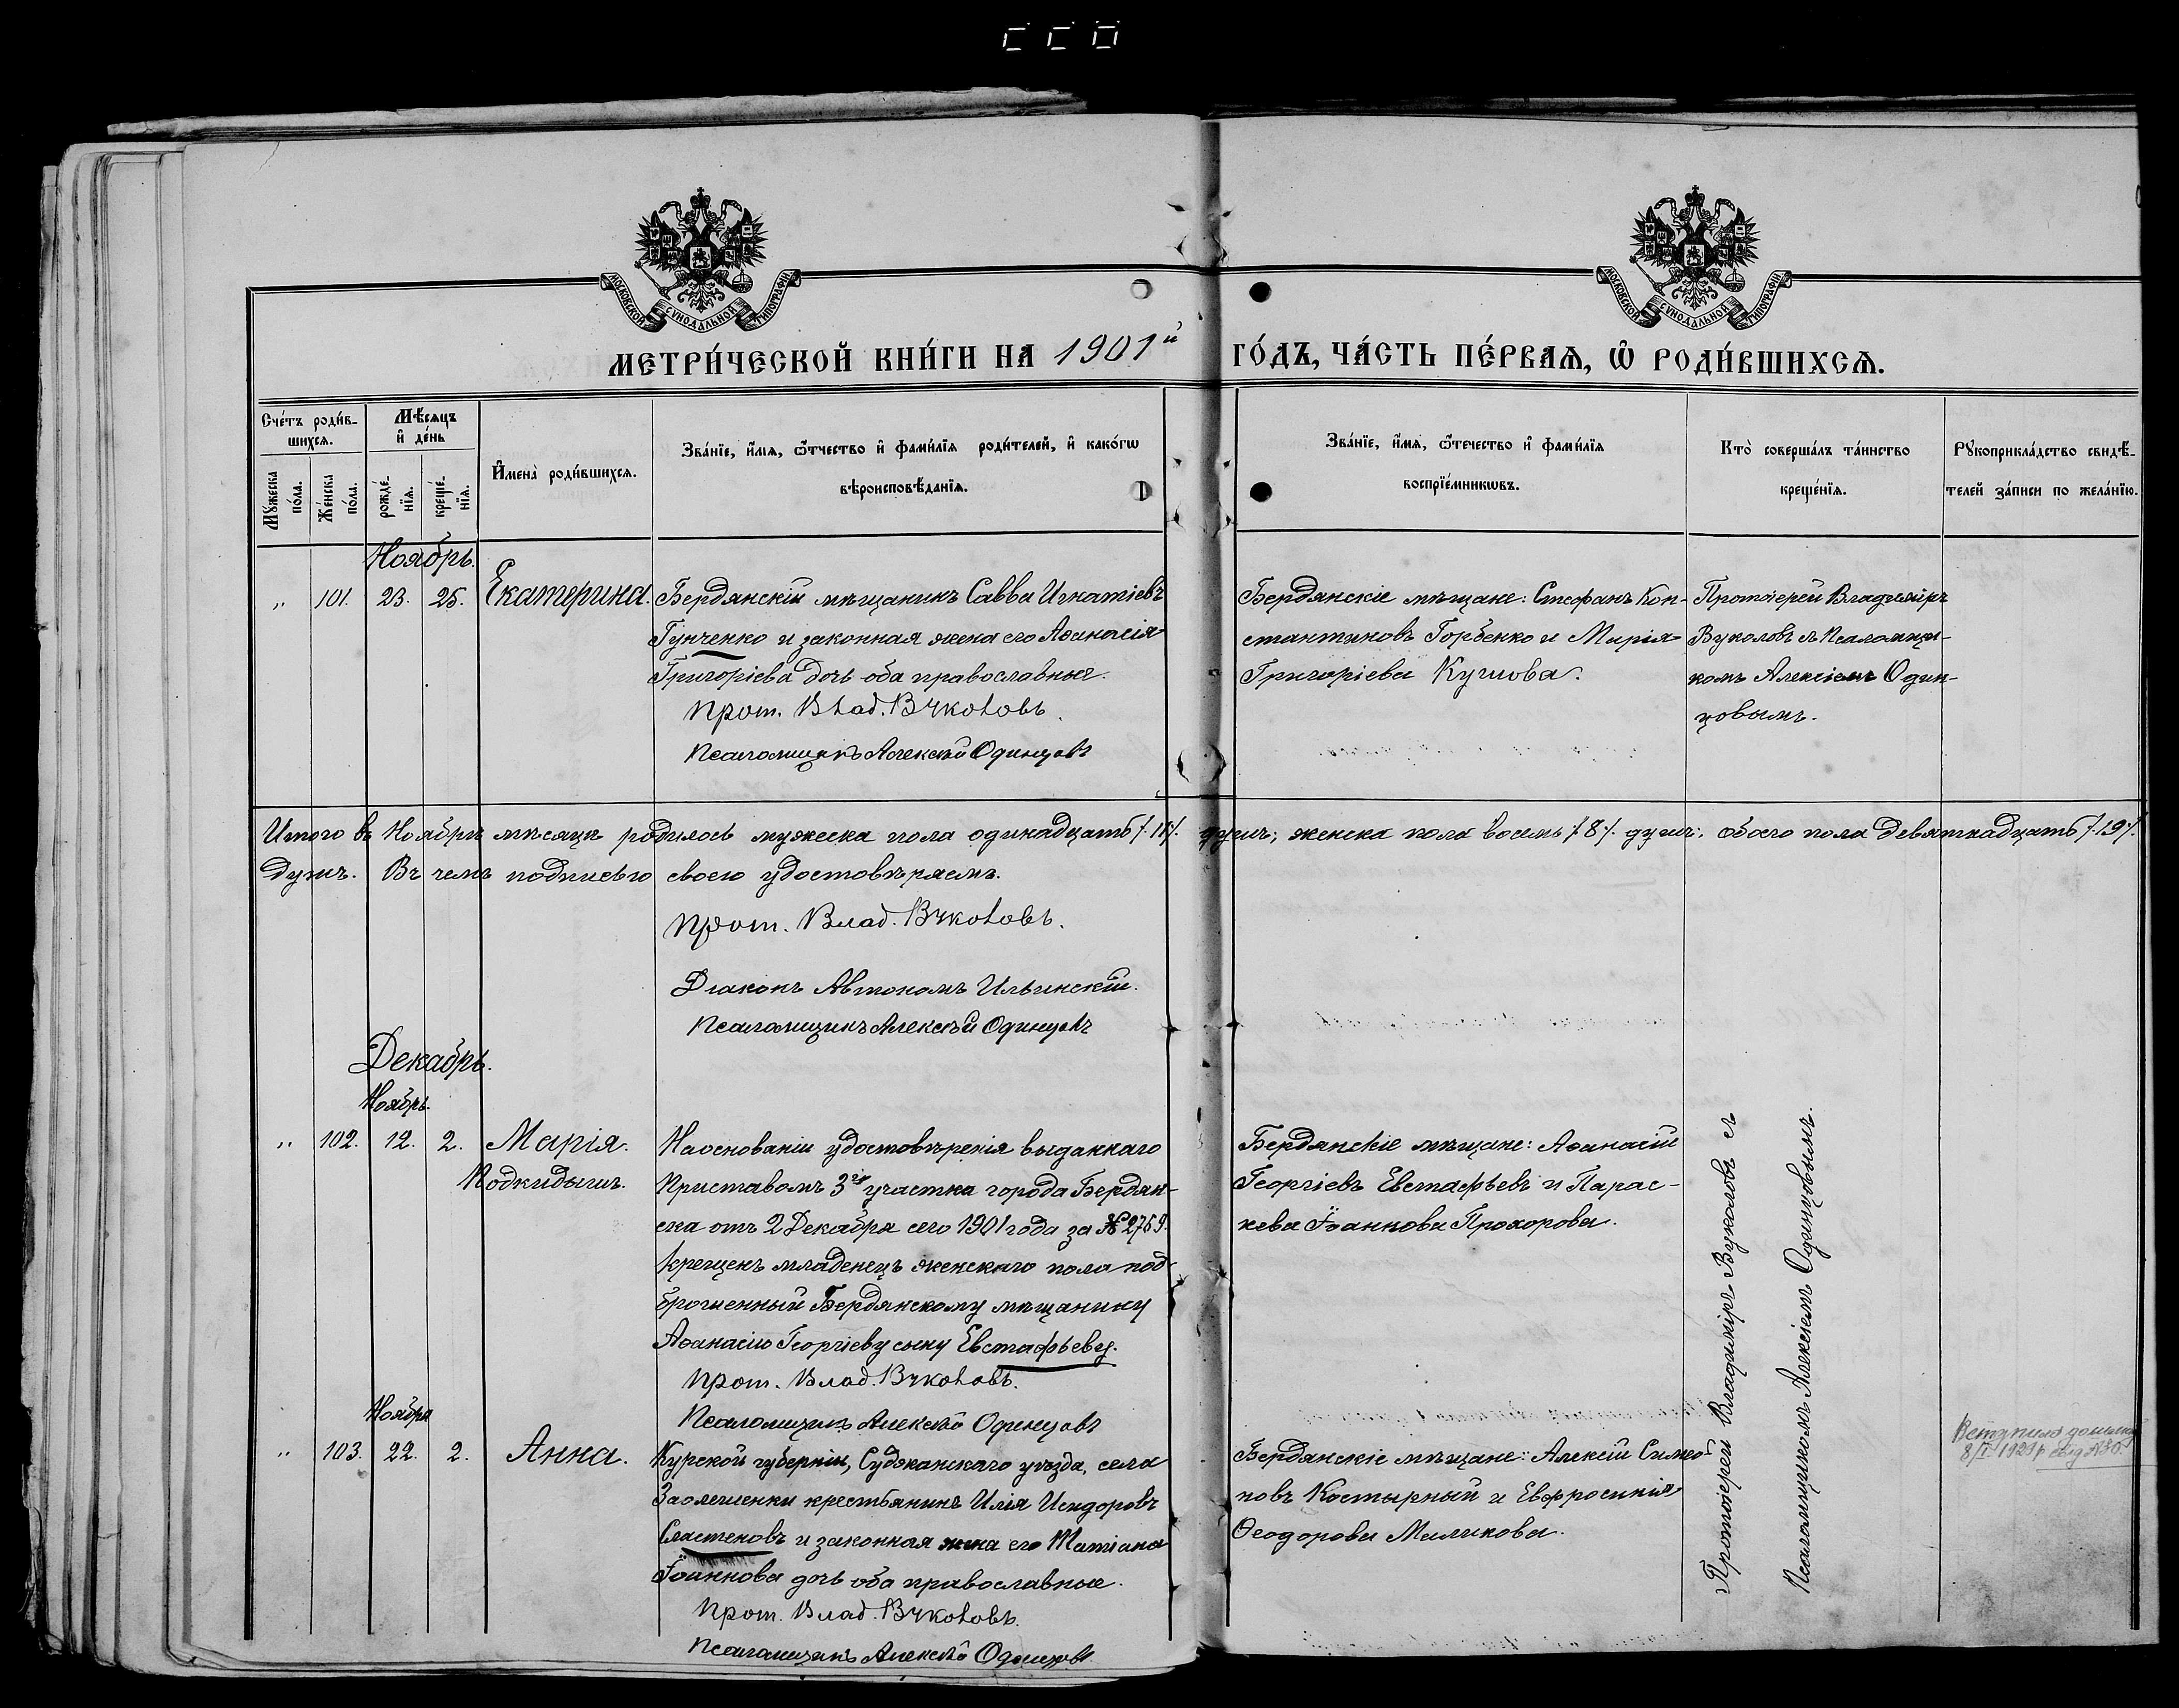 МОСКОВСКОЙ СѴНОДАЛЬНОЙ ТИПОГРАФІИ
МОСКОВСКОЙ СѴНОДАЛЬНОЙ ТИПОГРАФІИ
МЕТРИ́ЧЕСКОЙ КНИ́ГИ НА 1901й ГО́ДЪ, ЧА́СТЬ ПЕ́РВАѦ, Ѿ РОДИ́ВШИХСѦ.
Сче́тъ роди́в-
шихсѧ.
Мꙋ́жеска по́ла.
Же́нска по́ла.
Мѣ́сѧцъ
и҆ де́нь
рожде́-
нїѧ.
креще́-
нїѧ.
И҆мена̀ роди́вшихсѧ.
Зва́нїе, и҆́мѧ, ѻ҆́тчество и҆ фами́лїѧ роди́телей, и҆ како́гѡ
вѣроисповѣ́данїѧ.
Зва́нїе, и҆́мѧ, ѻ҆́течество и҆ фами́лїѧ
воспрїе́мникѡвъ.
Кто̀ соверша́лъ та́инство
креще́нїѧ.
Рꙋкоприкла́дство свидѣ́-
телей за́писи по жела́нїю.
Ноябрь.
„ 101. 23. 25. Екатерина.
Бердянскій мѣщанинъ Савва Игнатіевъ
Гунченко и законная жена его Аѳанасія
Григоріева дочь оба православные.
Прот. Влад. Вуколовъ.
Псаломщикъ Алексѣй Одинцовъ
Бердянскіе мѣщане: Стефанъ Кон-
стантиновъ Горбенко и Марія
Григоріева
Протоіерей Владиміръ
Вуколовъ съ Псаломщи-
комъ Алексіемъ Один-
цовымъ.
Итого въ Ноябрѣ мѣсяцѣ родилось мужеска пола одинадцать /.11/. душъ; женска пола восемь /.8/. душъ; обоего пола девятнадцать /.19/.
душъ. Въ чемъ подписью своею удостовѣряемъ.
Прот. Влад. Вуколовъ.
Діаконъ Автономъ Ильинскій.
Псаломщикъ Алексѣй Одинцовъ
Декабрь.
Ноябрь.
„ 102. 12. 2. Марія.
Подкидышъ.
На основаніи удостовѣренія выданнаго
Приставомъ 3го участка города Бердян-
ска отъ 2 Декабря сего 1901 года за № 2769.
крещенъ младенецъ женскаго пола под-
брошенный Бердянскому мѣщанину
Аѳанасію Георгіеву сыну Евстафьеву.
Прот. Влад. Вуколовъ.
Псаломщикъ Алексѣй Одинцовъ
Бердянскіе мѣщане: Аѳанасій
Георгіевъ Евстафьевъ и Парас-
кева Іоаннова Прохорова.
Протоіерей Владиміръ Вуколовъ съ
Псаломщикомъ Алексіемъ Одинцовымъ.
Ноября
„ 103. 22. 2. Анна.
Курской губерніи, Суджанскаго уѣзда, села
Заолешенки крестьянинъ Илія Исидоровъ
Сластеновъ и законная жена его Татіана
Іоаннова дочь оба православные.
Прот. Влад. Вуколовъ.
Псаломщикъ Алексѣй Одинцовъ
Бердянскіе мѣщане: Алексій Симео-
новъ Костырный и Евфросинія
Ѳеодорова Маликова.